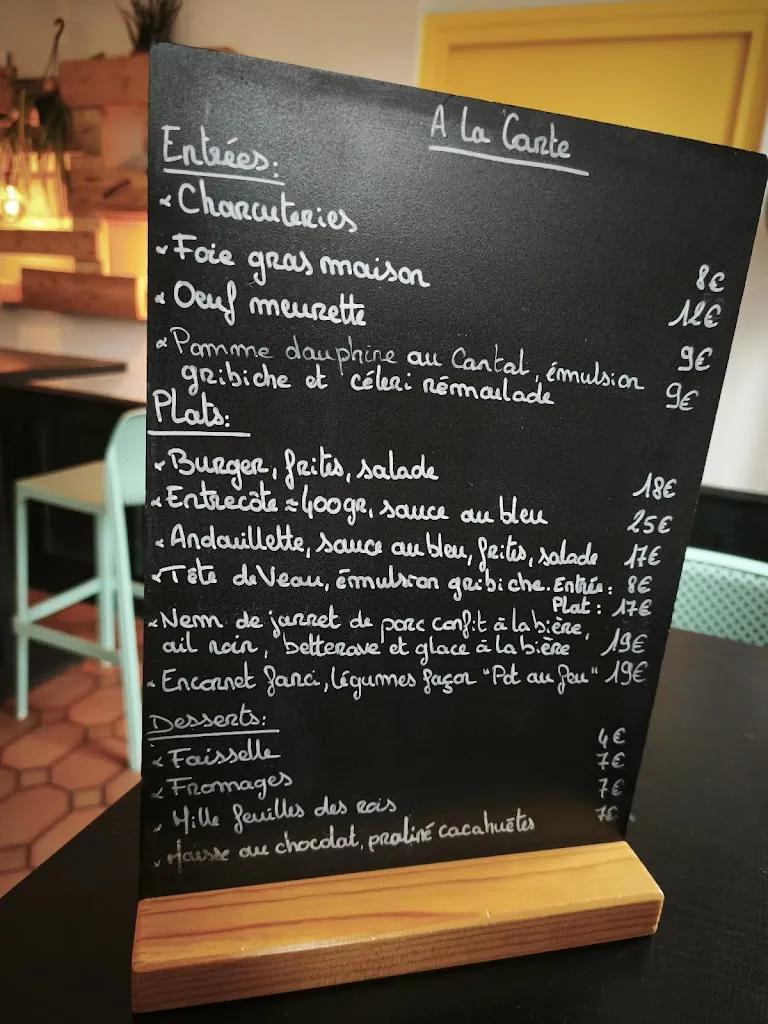 A la Carte
Entrées:
Charcuteries 8€
Foie gras maison 12€
Oeuf meurette 9€
Pomme dauphine au Cantal, émulsion
gribiche et céleri rémoulade 9€
Plats:
Burger, frites, salade 18€
Entrecôte ≈400gr, sauce au bleu 25€
Andouillette, sauce au bleu, frites, salade 17€
Tête de Veau, émulsion gribiche. Entrée: 8€
Plat: 17€
Nem de jarret de porc confit à la bière,
ail noir, betterave et glace à la bière 19€
Encornet farci, légumes façon "Pot au feu" 19€
Desserts:
Faisselle 4€
Fromages 7€
Mille feuilles des rois 7€
Mousse au chocolat, praliné cacahuètes 7€